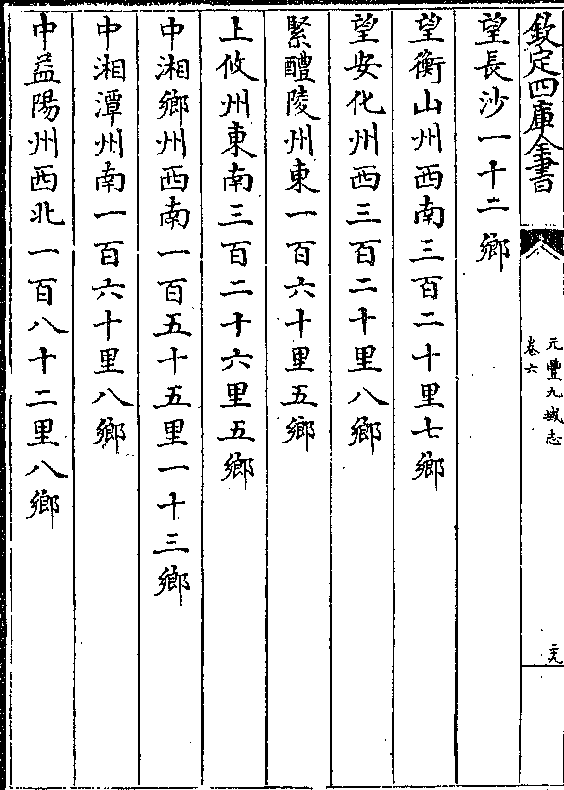 欽定四庫全書
元豐九域志
卷六
二九
望長沙一十二鄉
望衡山州西南三百二十里七鄉
望安化州西三百二十里八鄉
緊醴陵州東一百六十里五鄉
上攸州東南三百二十六里五鄉
中湘鄉州西南一百五十五里一十三鄉
中湘潭州南一百六十里八鄉
中益陽州西北一百八十二里八鄉